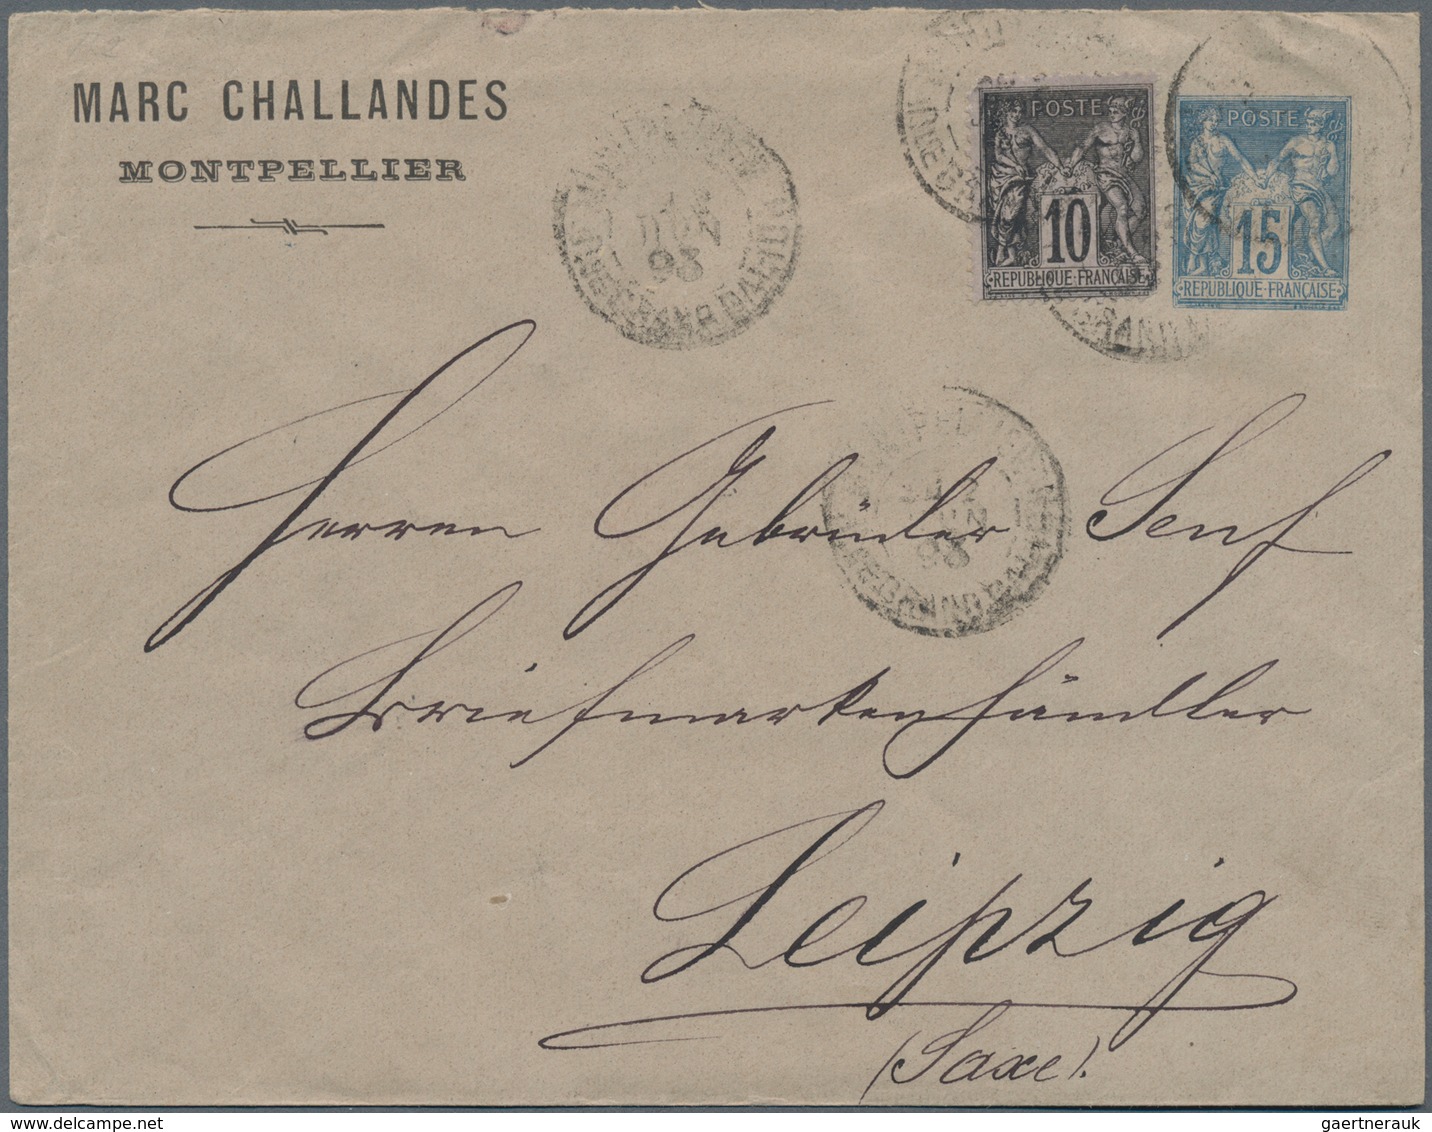 MARC CHALLANDES
MONTPELLIER
POSTE
10
REPUBLIQUE FRANÇAISE
POSTE
15
REPUBLIQUE FRANÇAISE
JUIN
93
JUIN
93
Herren Gebrüder Senf
Briefmarkenhändler
Leipzig
(Saxe).
gaertnerauk